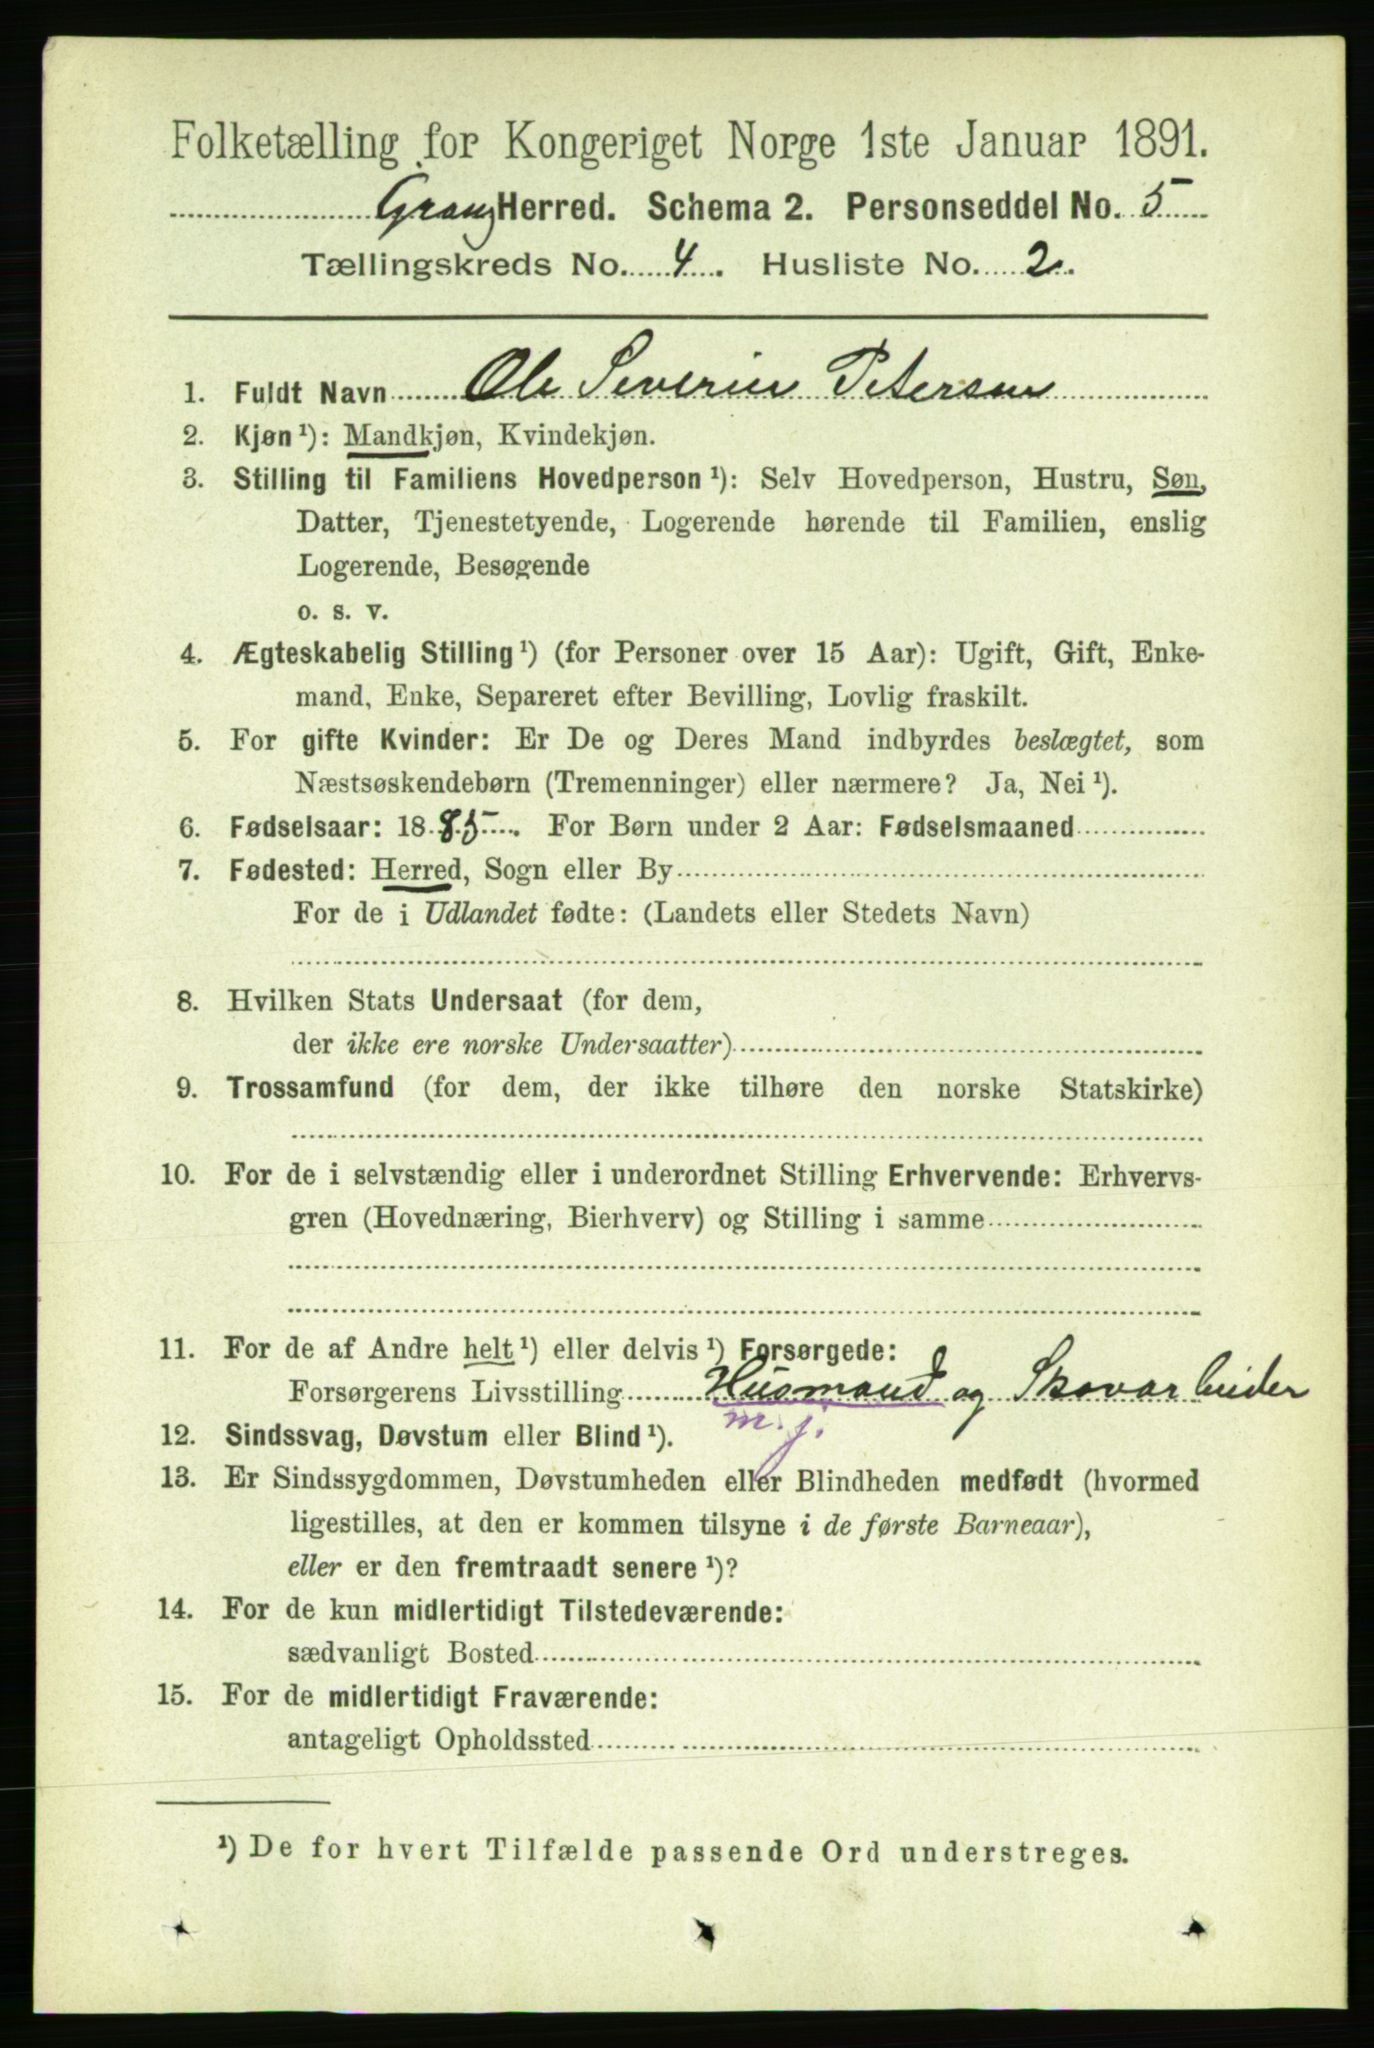 Folketælling for Kongeriget Norge 1ste Januar 1891.
Gran Herred. Schema 2. Personseddel No. 5
Tællingskreds No. 4. Husliste No. 2.
1. Fuldt Navn Ole Severin Petersen
2. Kjøn ¹): Mandkjøn, Kvindekjøn.
3. Stilling til Familiens Hovedperson ¹): Selv Hovedperson, Hustru, Søn,
Datter, Tjenestetyende, Logerende hørende til Familien, enslig
Logerende, Besøgende
o. s. v.
4. Ægteskabelig Stilling ¹) (for Personer over 15 Aar): Ugift, Gift, Enke-
mand, Enke, Separeret efter Bevilling, Lovlig fraskilt.
5. For gifte Kvinder: Er De og Deres Mand indbyrdes beslægtet, som
Næstsøskendebørn (Tremenninger) eller nærmere? Ja, Nei ¹).
6. Fødselsaar: 1885. For Børn under 2 Aar: Fødselsmaaned
7. Fødested: Herred, Sogn eller By
For de i Udlandet fødte: (Landets eller Stedets Navn)
8. Hvilken Stats Undersaat (for dem,
der ikke ere norske Undersaatter)
9. Trossamfund (for dem, der ikke tilhøre den norske Statskirke)
10. For de i selvstændig eller i underordnet Stilling Erhvervende: Erhvervs-
gren (Hovednæring, Bierhverv) og Stilling i samme
11. For de af Andre helt ¹) eller delvis ¹) Forsørgede:
Forsørgerens Livsstilling Husmand og Skovarbeider
m. j.
12. Sindssvag, Døvstum eller Blind ¹).
13. Er Sindssygdommen, Døvstumheden eller Blindheden medfødt (hvormed
ligestilles, at den er kommen tilsyne i de første Barneaar),
eller er den fremtraadt senere ¹)?
14. For de kun midlertidigt Tilstedeværende:
sædvanligt Bosted
15. For de midlertidigt Fraværende:
antageligt Opholdssted
¹) De for hvert Tilfælde passende Ord understreges.